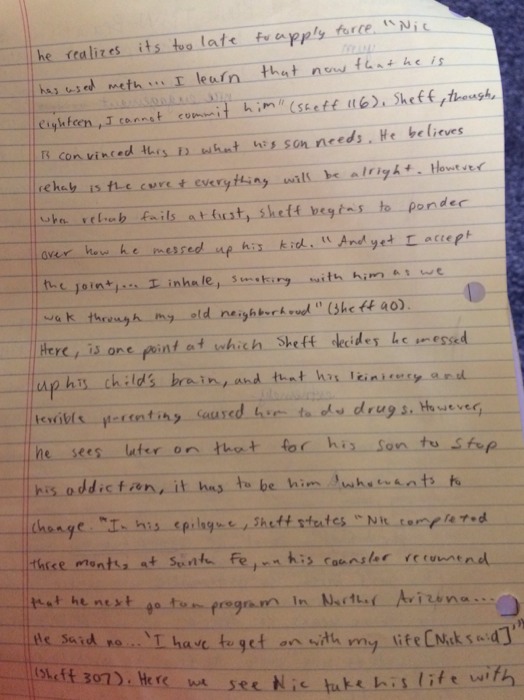 he realizes its too late to apply force. "Nic
has used meth... I learn that now that he is
eighteen, I cannot commit him" (Sheff 116). Sheff, though,
is convinced this is what his son needs. He believes
rehab is the cure & everything will be alright. However
when rehab fails at first, Sheff begins to ponder
over how he messed up his kid. "And yet I accept
the joint,... I inhale, smoking with him as we
wak through my old neighborhood" (Sheff 90).
Here, is one point at which Sheff decides he messed
up his child's brain, and that his leiniency and
terrible parenting caused him to do drugs. However,
he sees later on that for his son to stop
his addiction, it has to be him who wants to
change. "In his epilogue, Sheff states "Nic completed
three months at Santa Fe, his counsler recumend
that he next go to a program in Norther Arizona...
He said no... 'I have to get on with my life [Nick said]'"
(Sheff 307). Here we see Nic take his life with